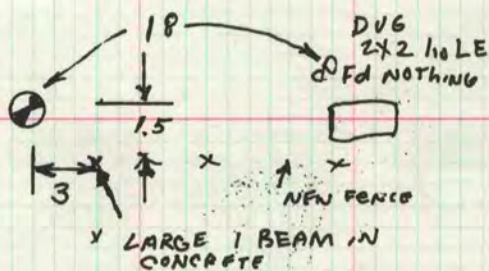 18
DUG
2X2 HOLE
Fd NOTHING
1.5
3
NEW FENCE
LARGE I BEAM IN
CONCRETE